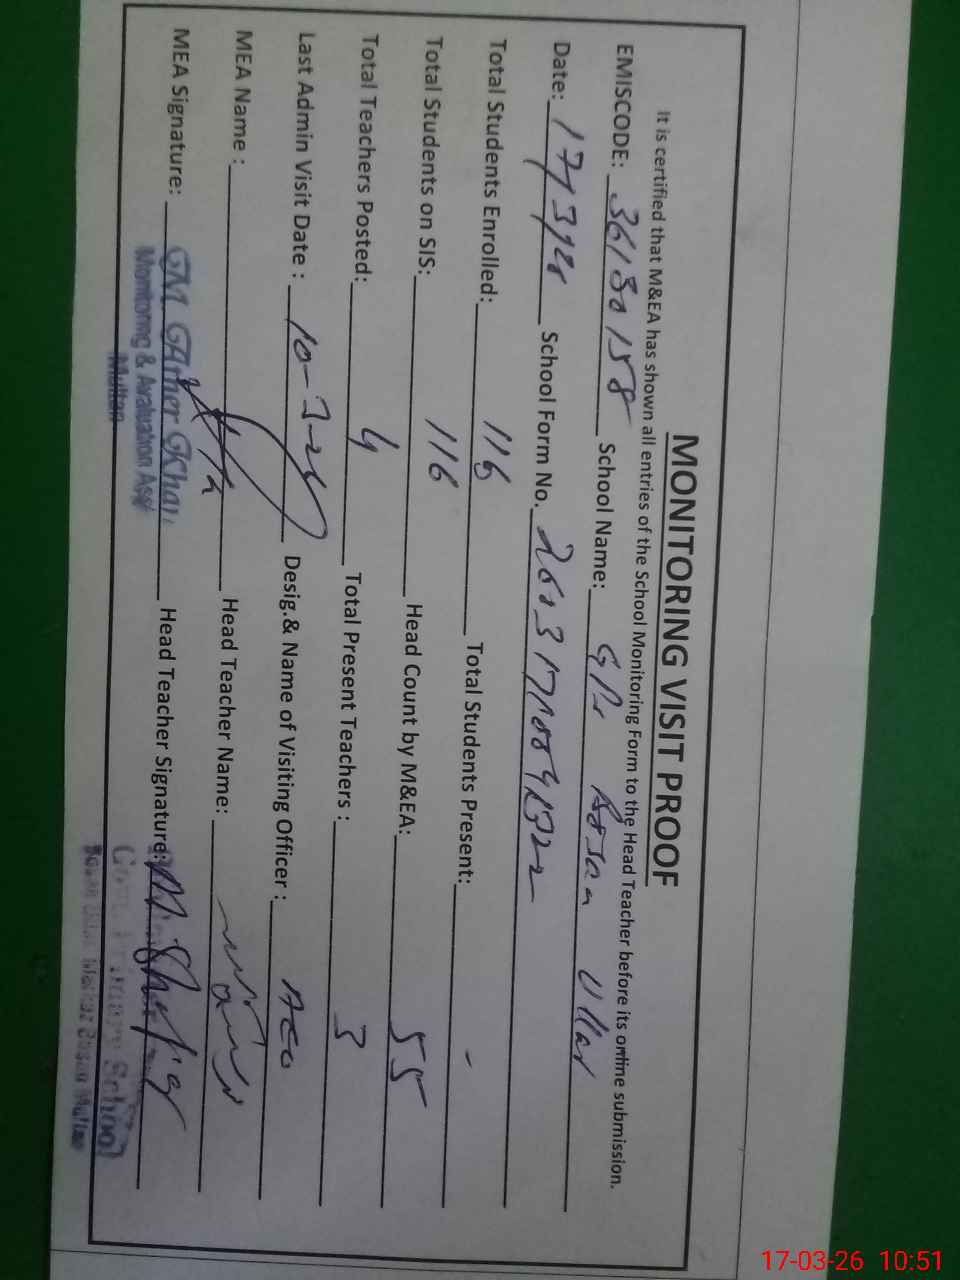 MONITORING VISIT PROOF
It is certified that M&EA has shown all entries of the School Monitoring Form to the Head Teacher before its online submission.
EMISCODE: 36130158 School Name: GPS Bosan Uttar
Date: 17/3/26 School Form No. 2603171084522
Total Students Enrolled: 116 Total Students Present: -
Total Students on SIS: 116 Head Count by M&EA: 55
Total Teachers Posted: 4 Total Present Teachers : 3
Last Admin Visit Date : 10-3-26 Desig.& Name of Visiting Officer : AEO
MEA Name : Head Teacher Name:
MEA Signature: Head Teacher Signature: M. Shafiq
Monitoring & Avaluation Asst
Multan
Govt. Primary School
Markaz Bosan Multan
17-03-26 10:51